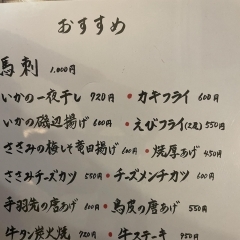 おすすめ
馬刺 1,000円
いかの一夜干し 920円 ・カキフライ 600円
いかの磯辺揚げ 600円 ・えびフライ(2尾) 550円
ささみの梅しそ竜田揚げ 600円 ・焼厚あげ 450円
ささみチーズカツ 550円 ・チーズメンチカツ 600円
手羽先の唐あげ 600円 ・鳥皮の唐あげ 550円
牛タン炭火焼 920円 ・牛ステーキ 950円